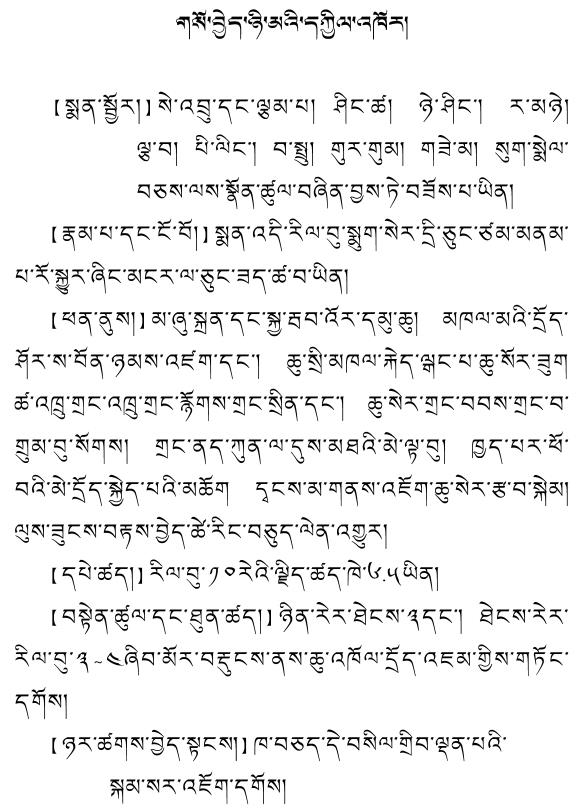 གསོ་བྱེད་ཉི་མའི་དཀྱིལ་འཁོར།
【སྨན་སྦྱོར།】སེ་འབྲུ་དང་ལྕམ་པ། ཤིང་ཚ། ཉེ་ཤིང་། ར་མཉེ།
ལྕེ་བ། པི་ལིང་། བ་སྤྲུ། གུར་གུམ། གཟེ་མ། སུག་སྨེལ་
བཅས་ལས་སྔོན་ཚུལ་བཞིན་བྱས་ཏེ་བཟོས་པ་ཡིན།
【རྣམ་པ་དང་ངོ་བོ།】སྨན་འདི་རིལ་བུ་སྨུག་སེར་དྲི་ཅུང་ཙམ་མནམ་
པ་རོ་སྐྱུར་ཞིང་མངར་ལ་ཅུང་ཟད་ཚ་བ་ཡིན།
【ཕན་ནུས།】མ་ཞུ་སྐྲན་དང་སྐྱ་རབ་འོར་དམུ་ཆུ། མཁལ་མའི་དྲོད་
ཤོར་ས་བོན་ཉམས་འཛག་དང་། ཆུ་སྲི་མཁལ་རྐེད་ལྒང་པ་ཆུ་སོར་ཟུག
ཚ་འཁྲུ་གྲང་འཁྲུ་གྲང་རྙོགས་གྲང་སྲིན་དང་། ཆུ་སེར་གྲང་བབས་གྲང་བ་
གྲུམ་བུ་སོགས། གྲང་ནད་ཀུན་ལ་དུས་མཐའི་མེ་ལྟ་བུ། ཁྱད་པར་ཕོ་
བའི་མེ་དྲོད་སྐྱེད་པའི་མཆོག དྭངས་མ་གནས་འཇོག་ཆུ་སེར་རྩ་བ་སྐེམ།
ལུས་ཟུངས་བརྟས་བྱེད་ཚེ་རིང་བཅུད་ལེན་འགྱུར།
【དཔེ་ཚད།】རིལ་བུ་༡༠རེའི་ལྗིད་ཚད་ཁེ་༦.༥ཡིན།
【བསྟེན་ཚུལ་དང་ཐུན་ཚད།】ཉིན་རེར་ཐེངས་༣དང་། ཐེངས་རེར་
རིལ་བུ་༣~༤ཞིབ་མོར་བརྡུངས་ནས་ཆུ་འཁོལ་དྲོད་འཇམ་གྱིས་གཏོང་
དགོས།
【ཉར་ཚགས་བྱེད་སྟངས།】ཁ་བཅད་དེ་བསིལ་གྲིབ་ལྡན་པའི་
སྐམ་སར་འཇོག་དགོས།